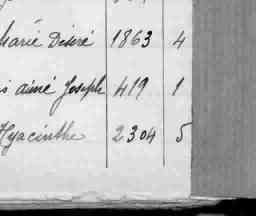 Marie Désiré 1863 4
s aimé Joseph 419 1
Hyacinthe 2304 5